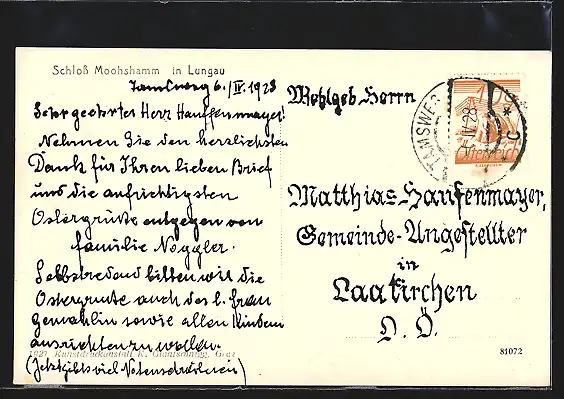 Schloß Moohshamm in Lungau
Tamsweg 6./IV. 1928
Sehr geehrter Herr Haufenmayer!
Nehmen Sie den herzlichsten
Dank für Ihren lieben Brief
und die aufrichtigsten
Ostergrüße entgegen von
familie Noggler.
Selbstredend bitten wir die
Ostergrüße auch des l. frau
gemahlin sowie allen Kindern
ausrichten zu wollen.
(Jetzt gibts viel Notenschreiberei)
1927 Kunstdruckanstalt K. Graz
Wohlgeb. Herrn
Matthias Haufenmayer,
Gemeinde-Angestellter
in
Laakirchen
O. Ö.
TAMSWEG
IV 28
15
Österreich
81072